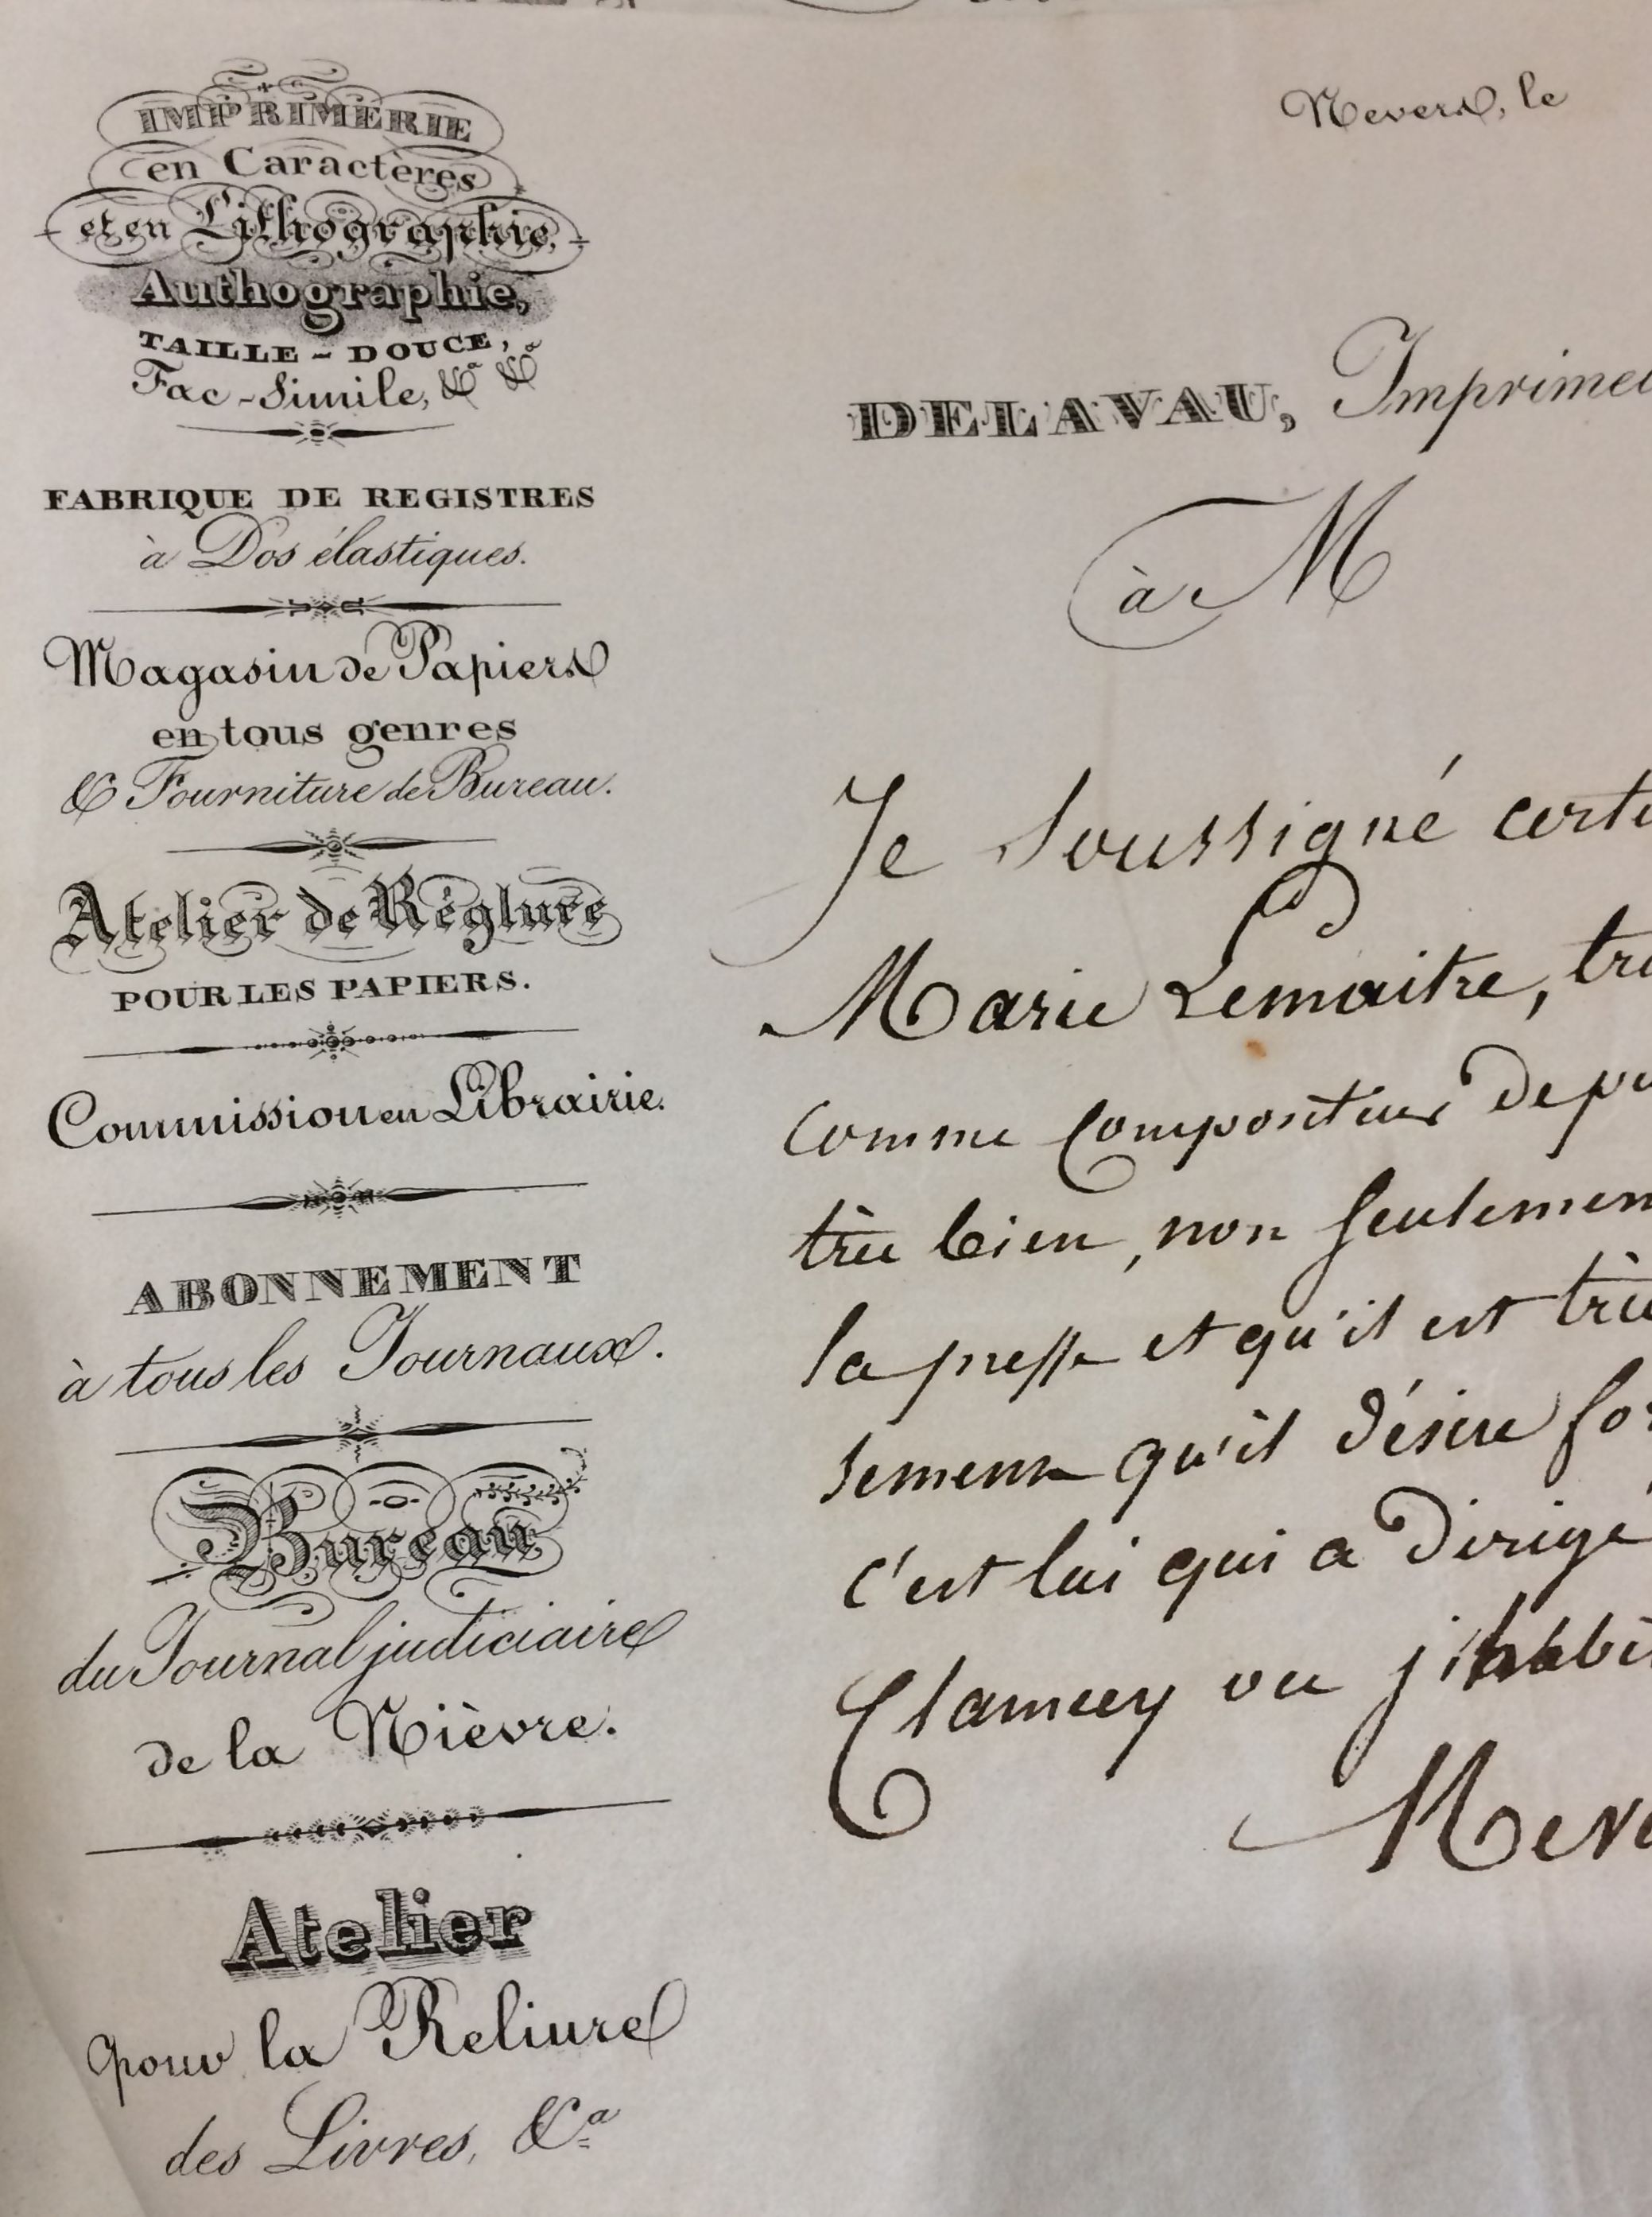 IMPRIMERIE
en Caractères
et en Lithographie,
Authographie,
TAILLE-DOUCE,
Fac-Simile, &a &a
FABRIQUE DE REGISTRES
à Dos élastiques.
Magasin de Papiers
en tous genres
& Fourniture de Bureau.
Atelier de Réglure
POUR LES PAPIERS.
Commission en Librairie.
ABONNEMENT
à tous les Journaux.
Bureau
du Journal judiciaire
de la Nièvre.
Atelier
pour la Reliure
des Livres, &a
Nevers, le
DELAVAU, Imprimeu
à M
Je soussigné certi
Marie Lemaitre, tra
comme compositeur depu
très bien, non seulemen
la presse et qu'il est très
sement qu'il désire for
c'est lui qui a dirigé
Clamecy ou j'habi
Neve